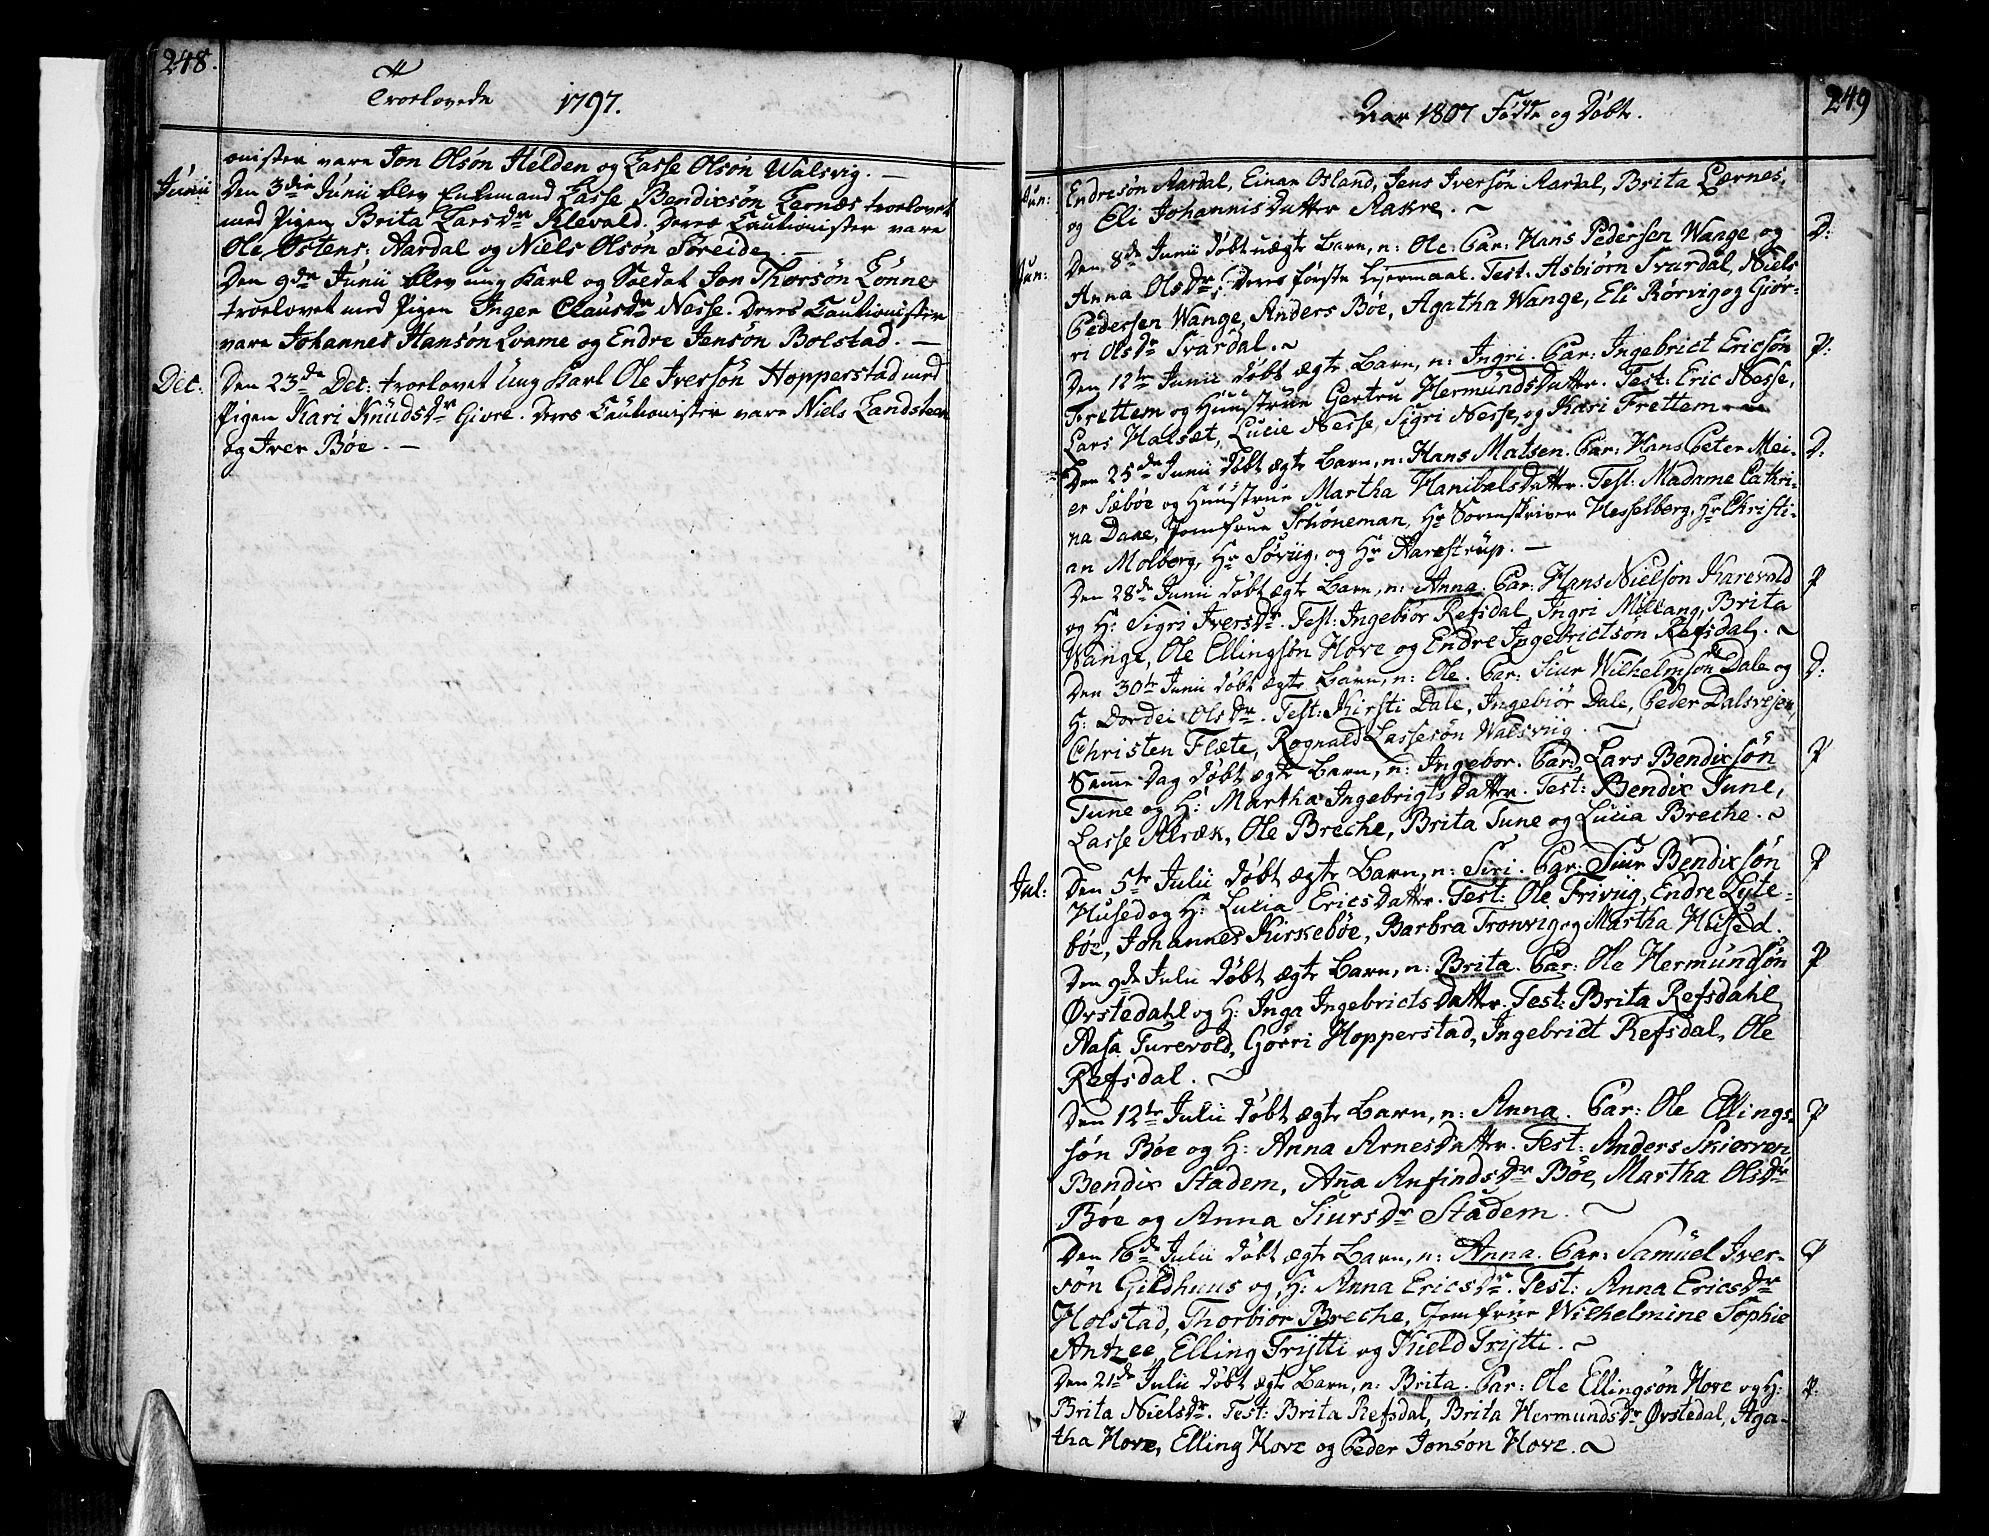 248.
Troelovede 1797.
onister vare Jon Olsøn Helden og Lasse Olsøn Walsvig. —
Junii
Den 3die Junii blev Enkemand Lasse Bendixsøn Lernæs troelovet
med Pigen Brita Larsdr Alevald. Deres Cautionister vare
Ole Ostens: Aardal og Niels Olsøn Svreide
Den 9de Junii blev ung Karl og Soldat Jon Thorsøn Lønne
troelovet med Pigen Inger Clausdr Nasse. Deres Cautionister
vare Johannes Hansøn Qvame og Endre Jensøn Bolstad. —
Dec:
Den 23de Dec: troelovet ung Karl Ole Iversøn Hopperstad med
Pigen Kari Knudsdr Giøre. Deres Cautionister vare Niels Landsteen
og Iver Bøe. —
249
Aar 1807 Fødte og Døbt.
Jun:
Endresøn Aardal, Einar Osland, Jens Iversøn Aardal, Brita Lærnes,
og Eli Johannisdatter Aakre. ~
Jun:
Den 8de Junii døbt uægte Barn, n: Ole. Par: Hans Pedersen Wange og
D:
Anna Olsdr, deres første Lejermaal. Test: Asbiørn Svardal, Niels
Pedersen Wange, Anders Bøe, Agatha Wange, Eli Rørvig og Giør-
ri Olsdr Svardal. ~
Den 12te Junii døbt ægte Barn, n: Ingri. Par: Ingebrict Ericsøn
P:
Frettem og Huustrue Gertru Hermundsdatter. Test: Eric Nesse,
Lars Halset, Lucie Nesse, Sigri Nesse, og Kari Frettem
Den 25de Junii døbt ægte Barn, n: Hans Matsen. Par: Hans Peter Mei-
D.
er Sæbøe og Huustrue Martha Hanibalsdatter. Test: Madame Cathri-
na Daae, Jomfrue Schöneman, Hr Sorenskriver Hesselberg, Hr Christi-
an Molberg, Hr Sørviig, og Hr Aarestrup. —
Den 28de Junii døbt ægte Barn, n: Anna. Par: Hans Nielsøn Karevold
P
og H: Sigri Iversdr. Test: Ingebiør Refsdal, Ingri Millang, Brita
Wange, Ole Ellingsøn Hove og Endre Ingebrictsøn Refsdal. ~
Den 30te Junii døbt ægte Barn, n: Ole. Par: Siur Wilhelmsøn Dale og
D:
H: Dordei Olsdr. Test: Kirsti Dale, Ingebiør Dale, Peder Dalsvejen,
Christen Flæte, Rognald Lassesøn Walsviig. ~
Samme Dag døbt ægte Barn, n: Ingebor. Par: Lars Bendixsøn
P
Tune og H: Martha Ingebrigtsdatter. Test: Bendix Tune,
Lasse Alræk, Ole Breche, Brita Tune og Lucia Breche. ~
Jul:
Den 5te Julii døbt ægte Barn, n: Siri. Par: Siur Bendixsøn
P
Hused og H: Lucia Ericsdatter. Test: Ole Friviig, Endre Lyte-
bøe, Johannes Kirkebøe, Barbra Tronvig og Martha Huised.
Den 9de Julii døbt ægte Barn, n: Brita. Par: Ole Hermundsøn
P
Ørstedahl og H: Inga Ingebrictsdatter. Test: Brita Refsdahl,
Aasa Turevold, Gørri Hopperstad, Ingebrict Refsdal, Ole
Refsdal. ~
Den 12te Julii døbt ægte Barn, n: Anna. Par: Ole Ellings-
P
søn Bøe og H: Anna Arnesdatter. Test: Anders Skierven
Bendix Stadem, Anna Anfindsdr Bøe, Martha Olsdr
Bøe og Anna Siursdr Stadem. ~
Den 16de Julii døbt ægte Barn, n: Anna. Par: Samuel Iver-
P
søn Gildhuus og H: Anna Ericsdr. Test: Anna Ericsdr
Holstad, Thorbiør Breche, Jomfrue Wilhelmine Sophie
Antzee, Elling Frytti og Kield Frytti. ~
Den 21de Julii døbt ægte Barn, n: Brita. Par: Ole Ellingsøn Hove og H:
P:
Brita Nielsdr. Test: Brita Refsdal, Brita Hermundsdr Ørstedal, Aga-
tha Hove, Elling Hove og Peder Jonsøn Hove. ~